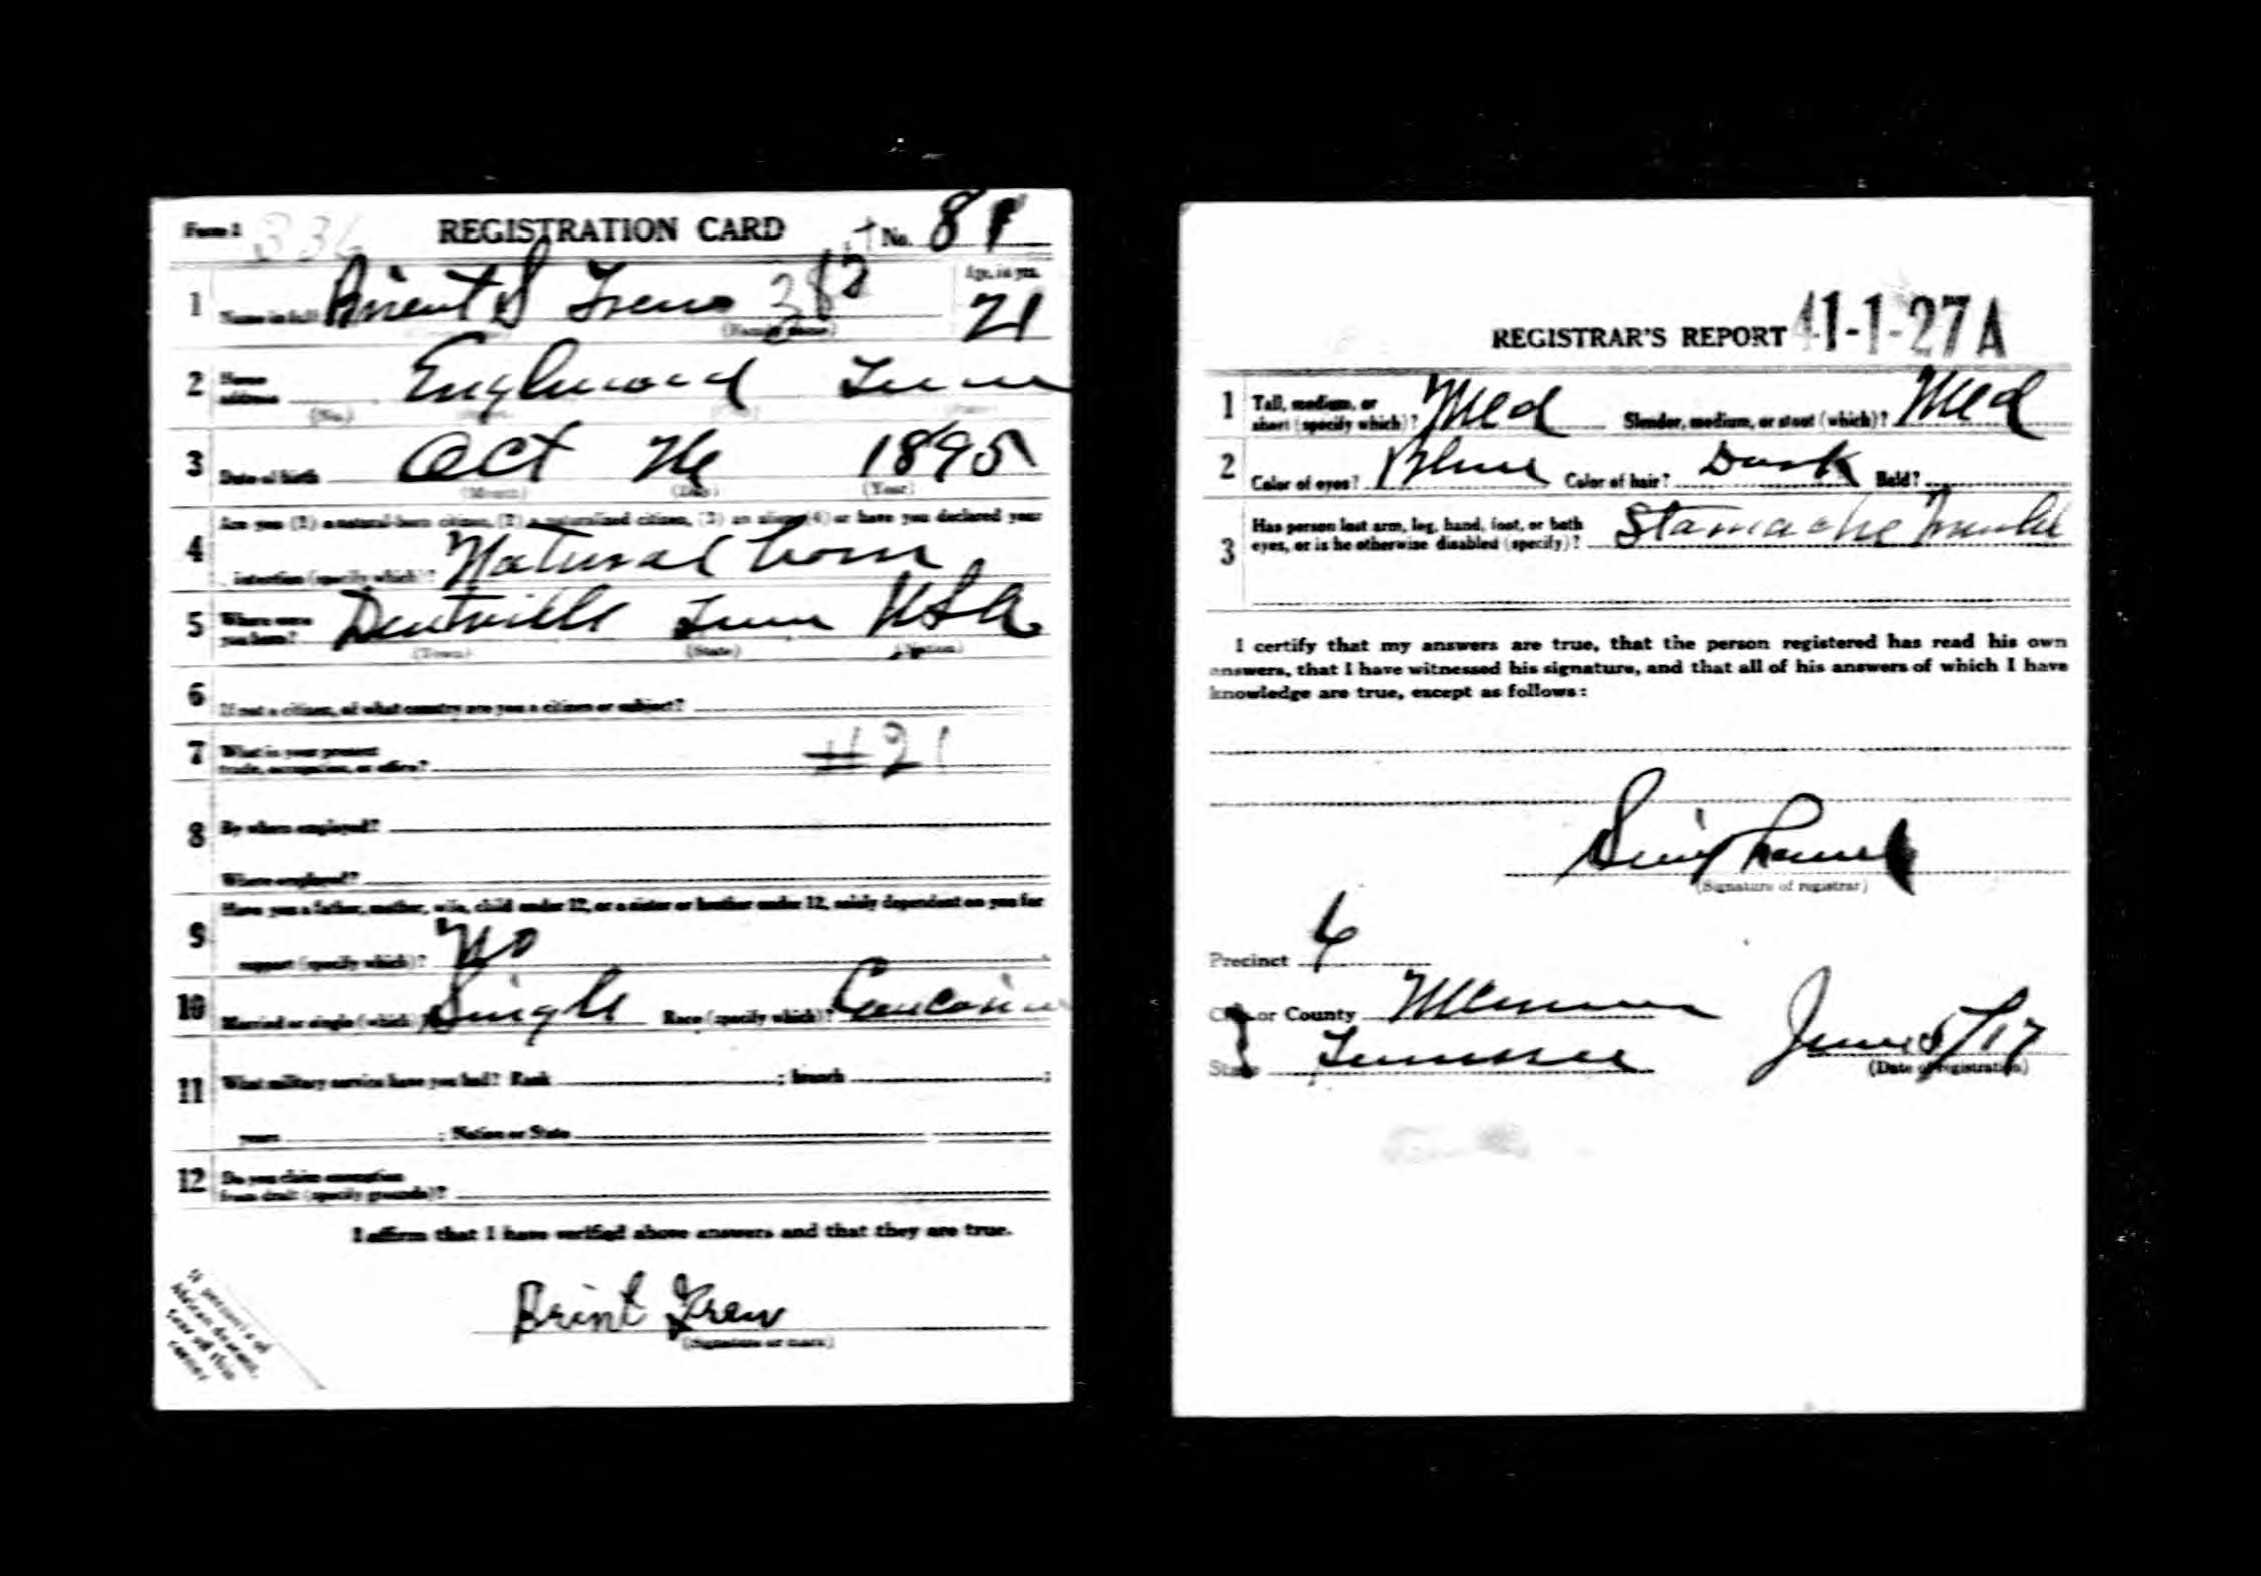 Form 1 336 REGISTRATION CARD No. 81
1 Name in full Brient S Trew 382 Age, in yrs. 21
(Family name)
2 Home address Englewood Tenn
(No.)
3 Date of birth Oct 26 1895
(Month) (Day) (Year)
4 Are you (1) a natural-born citizen, (2) a naturalized citizen, (3) an alien, (4) or have you declared your
intention (specify which)? Natural born
5 Where were you born? Dentville Tenn USA
(Town) (State) (Nation)
6 If not a citizen, of what country are you a citizen or subject?
7 What is your present
trade, occupation, or office? #21
8 By whom employed?
Where employed?
9 Have you a father, mother, wife, child under 12, or a sister or brother under 12, solely dependent on you for
support (specify which)? No
10 Married or single (which)? Single Race (specify which)? Caucasian
11 What military service have you had? Rank ; branch ;
years ; Nation or State
12 Do you claim exemption
from draft (specify grounds)?
I affirm that I have verified above answers and that they are true.
Brint Trew
(Signature or mark)
If person is of
African descent,
tear off this
corner
REGISTRAR'S REPORT 41-1-27 A
1 Tall, medium, or
short (specify which)? Med Slender, medium, or stout (which)? Med
2 Color of eyes? Blue Color of hair? Dark Bald?
3 Has person lost arm, leg, hand, foot, or both
eyes, or is he otherwise disabled (specify)? Stamache
I certify that my answers are true, that the person registered has read his own
answers, that I have witnessed his signature, and that all of his answers of which I have
knowledge are true, except as follows:
(Signature of registrar)
Precinct 6
City or County McMinn
State Tennessee June 5/17
(Date of registration)